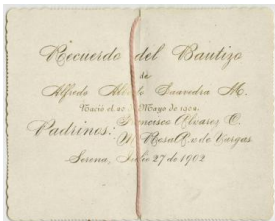 Recuerdo del Bautizo
de
Alfredo Alberto Saavedra M.
Nació el 20 Mayo de 1902.
Padrinos: Francisco Alvarez O.
M. Rosa R. v. de Vargas
Serena, Julio 27 de 1902